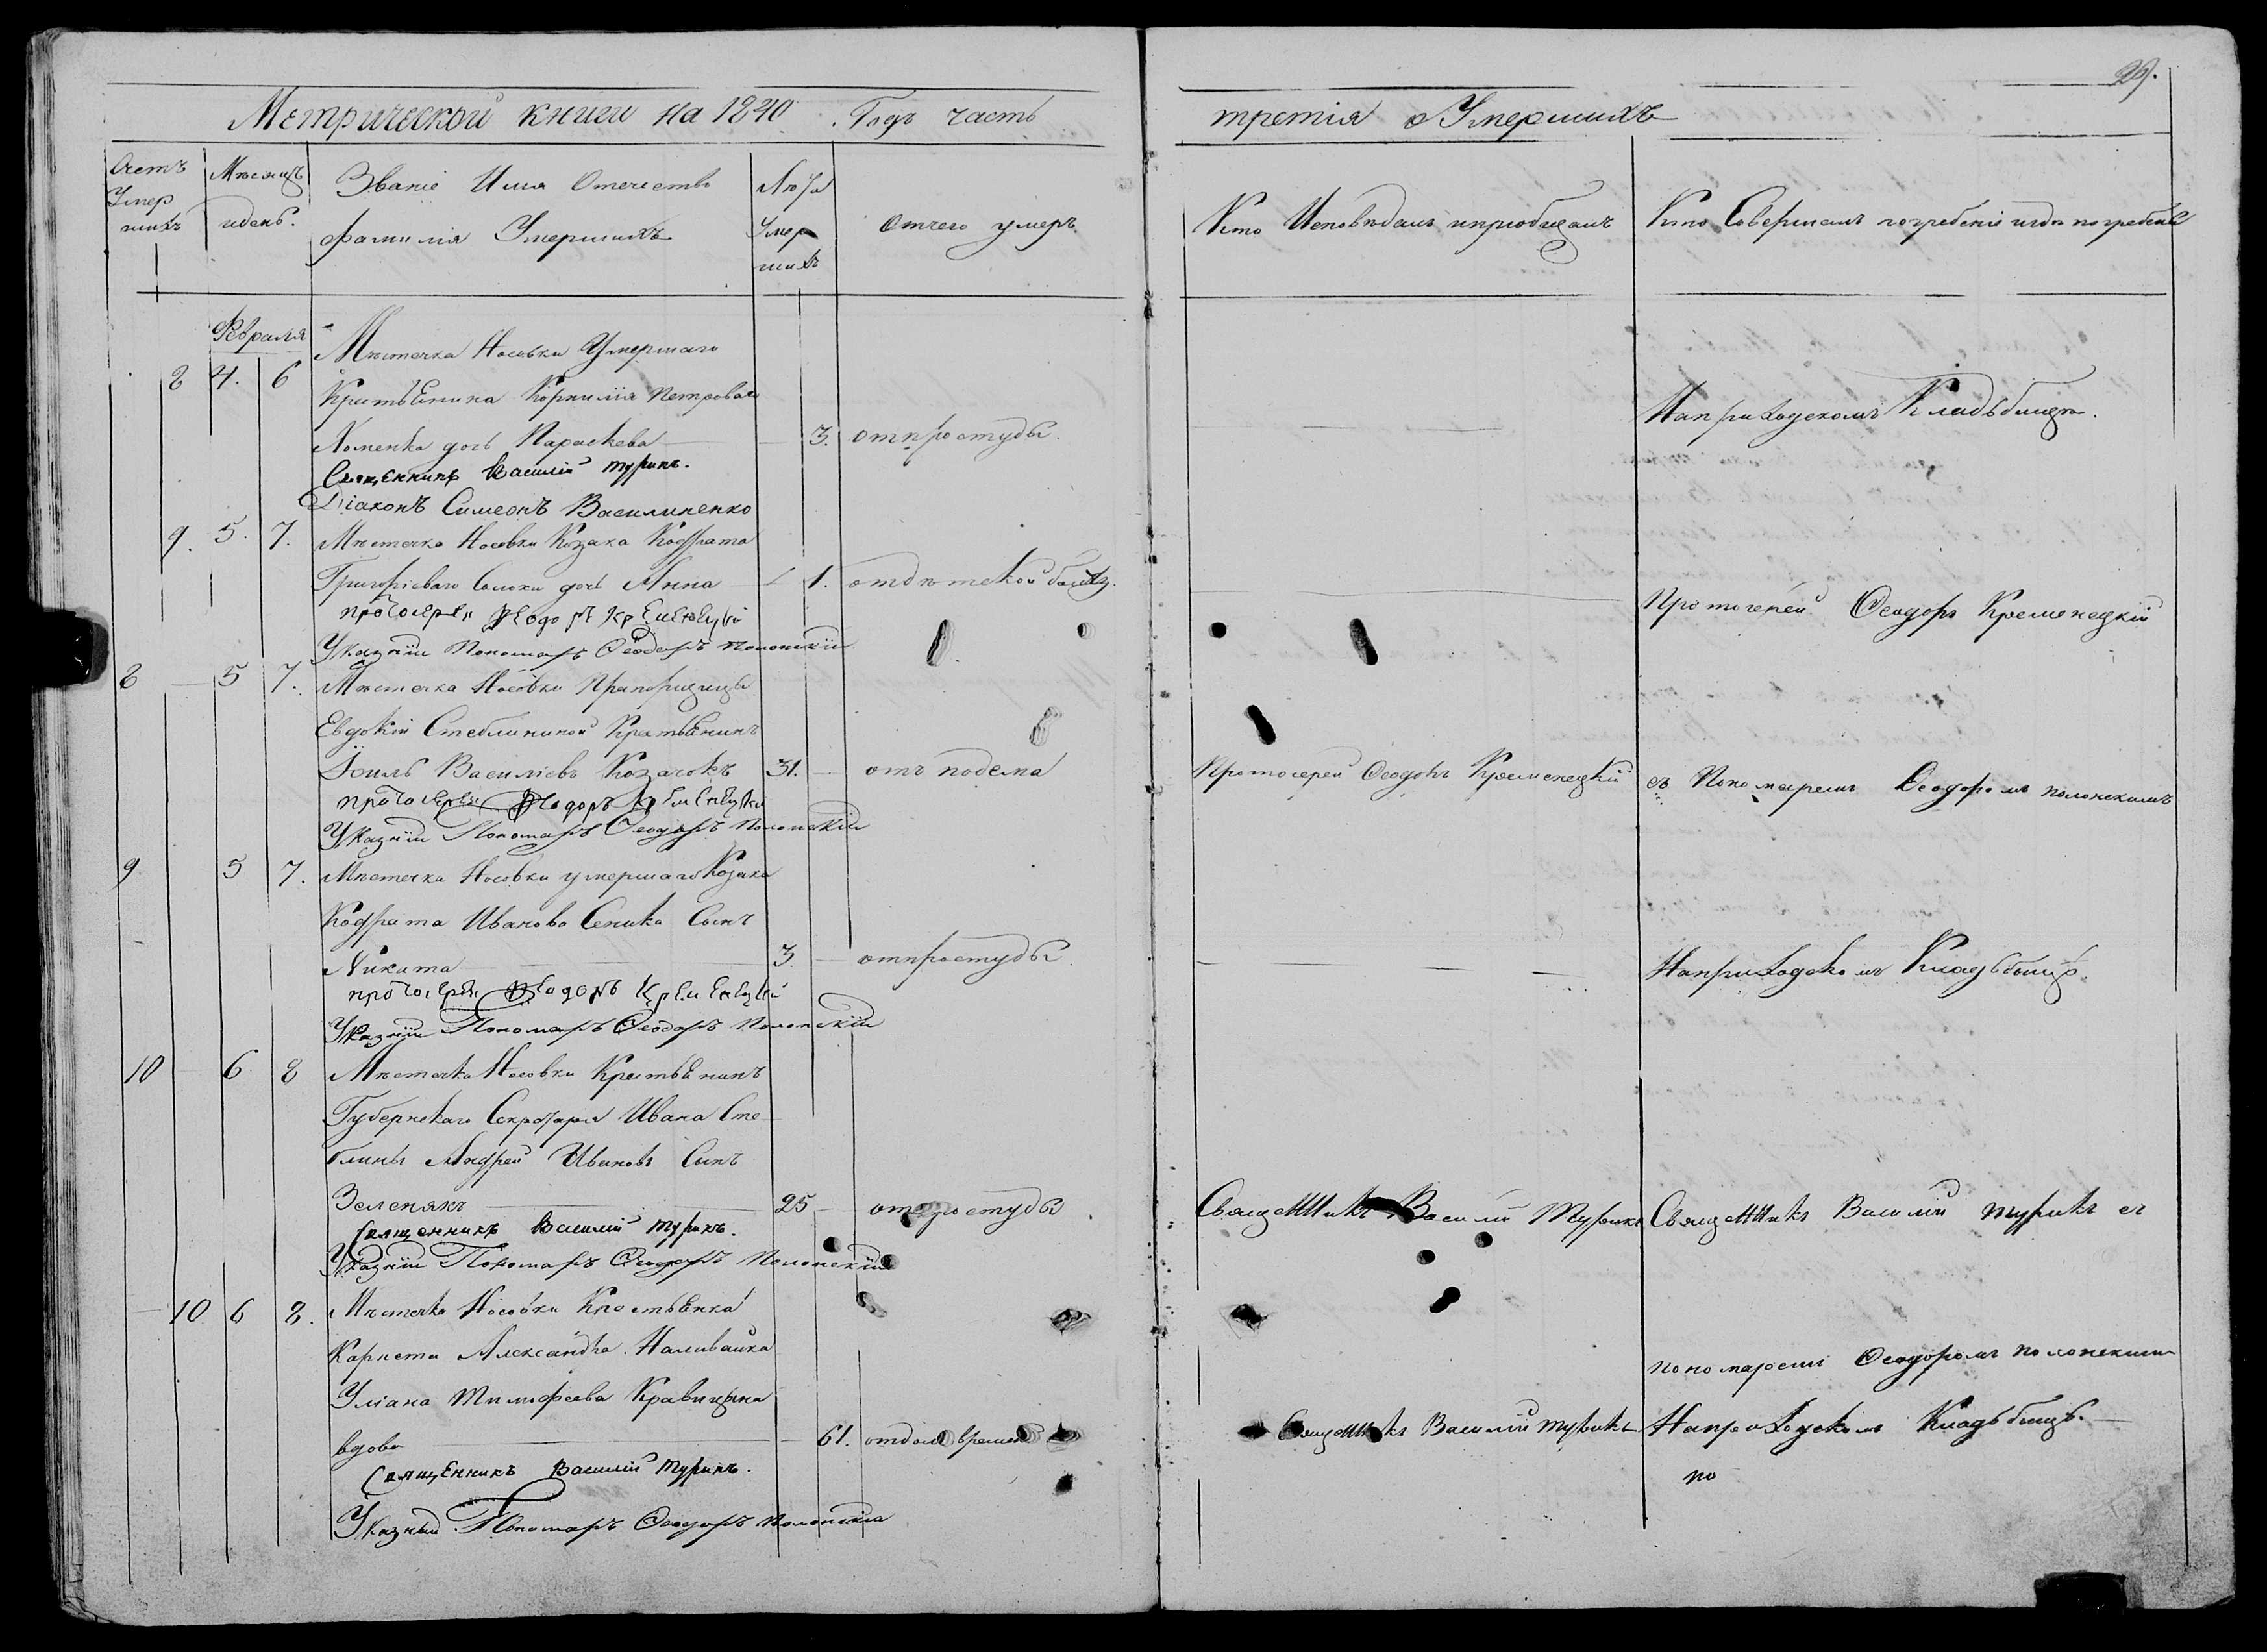 29.
Метрической книги на 1840 Годъ часть третія о Умершихъ
Счетъ Умер шихъ
Мѣсяцъ идень.
Званіе Имя Отечество фамилія Умершихъ
Лѣта Умер шихъ
Отчего умеръ
Кто Исповѣдалъ ипріобщалъ
Кто Совершалъ погребеніе игдѣ погребены
Февраля
8 4. 6 Мѣстечка Носовки Умершаго
Крестьянина Корнилія Петрова
Хоменка дочь Параскева 3. отпростуды.
Священникъ Василій Турикъ.
Діаконъ Симеонъ Василиненко
Наприходскомъ Кладьбищѣ.
9. 5. 7. Мѣстечка Носовки Козака Кодрата
Григоріеваго дочь Анна 1. отдѣтской
протоіерей Ѳеодоръ Кременецкій
Указній Пономаръ Ѳеодоръ Полонскій
Протоіерей Ѳеодоръ Кременецкій
8 5 7. Мѣстечка Носовки Прапорщицы
Евдокіи Стеблининой Крестьянинъ
Василіевъ Козачокъ 31. отъ подема
протоіерей Ѳеодоръ Кременецкій
Указній Пономаръ Ѳеодоръ Полонскій
Протоіерей Ѳеодоръ Кременецкій
съ Пономаремъ Ѳеодоромъ полонскимъ
9 5 7. Мѣстечка Носовки умершаго Козака
Кодрата Иванова Сеника Сынъ
Никита 3 отпростуды.
протоіерей Ѳеодоръ Кременецкій
Указній Пономаръ Ѳеодоръ Полонскій
Наприходскомъ Кладьбищѣ.
10 6 8 Мѣстечка Носовки Крестьянинъ
Губернскаго Секретаря Ивана Сте
блины Андрей Ивановъ Сынъ
Зеленякъ 25 отпростуды
Священникъ Василій Турикъ.
Указній Пономаръ Ѳеодоръ Полонскій
Священникъ Василій Турикъ
Священникъ Василій турикъ съ
10 6 8. Мѣстечка Носовки Крестьянка
Карнета Александра Наливайка
Уліана Тимофеева
вдова 61. отдолг времен
Священникъ Василій Турикъ.
Указній Пономаръ Ѳеодоръ Полонскій
Священникъ Василій турикъ
пономаремъ Ѳеодоромъ полонскимъ
Наприходскомъ Кладьбищѣ.
по